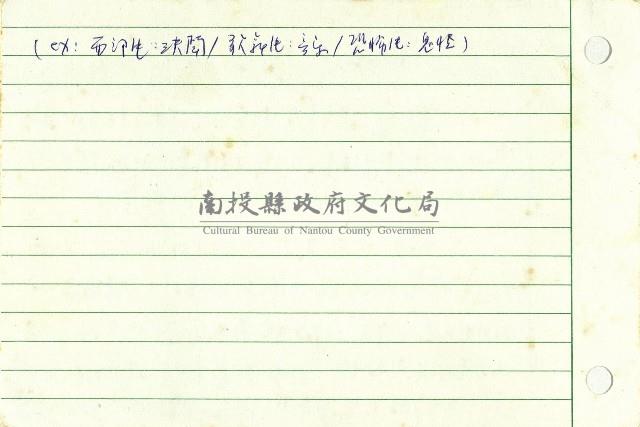 (ex: 西部片:決鬥/歌舞片:音乐/恐怖片:鬼怪)
南投縣政府文化局
Cultural Bureau of Nantou County Government